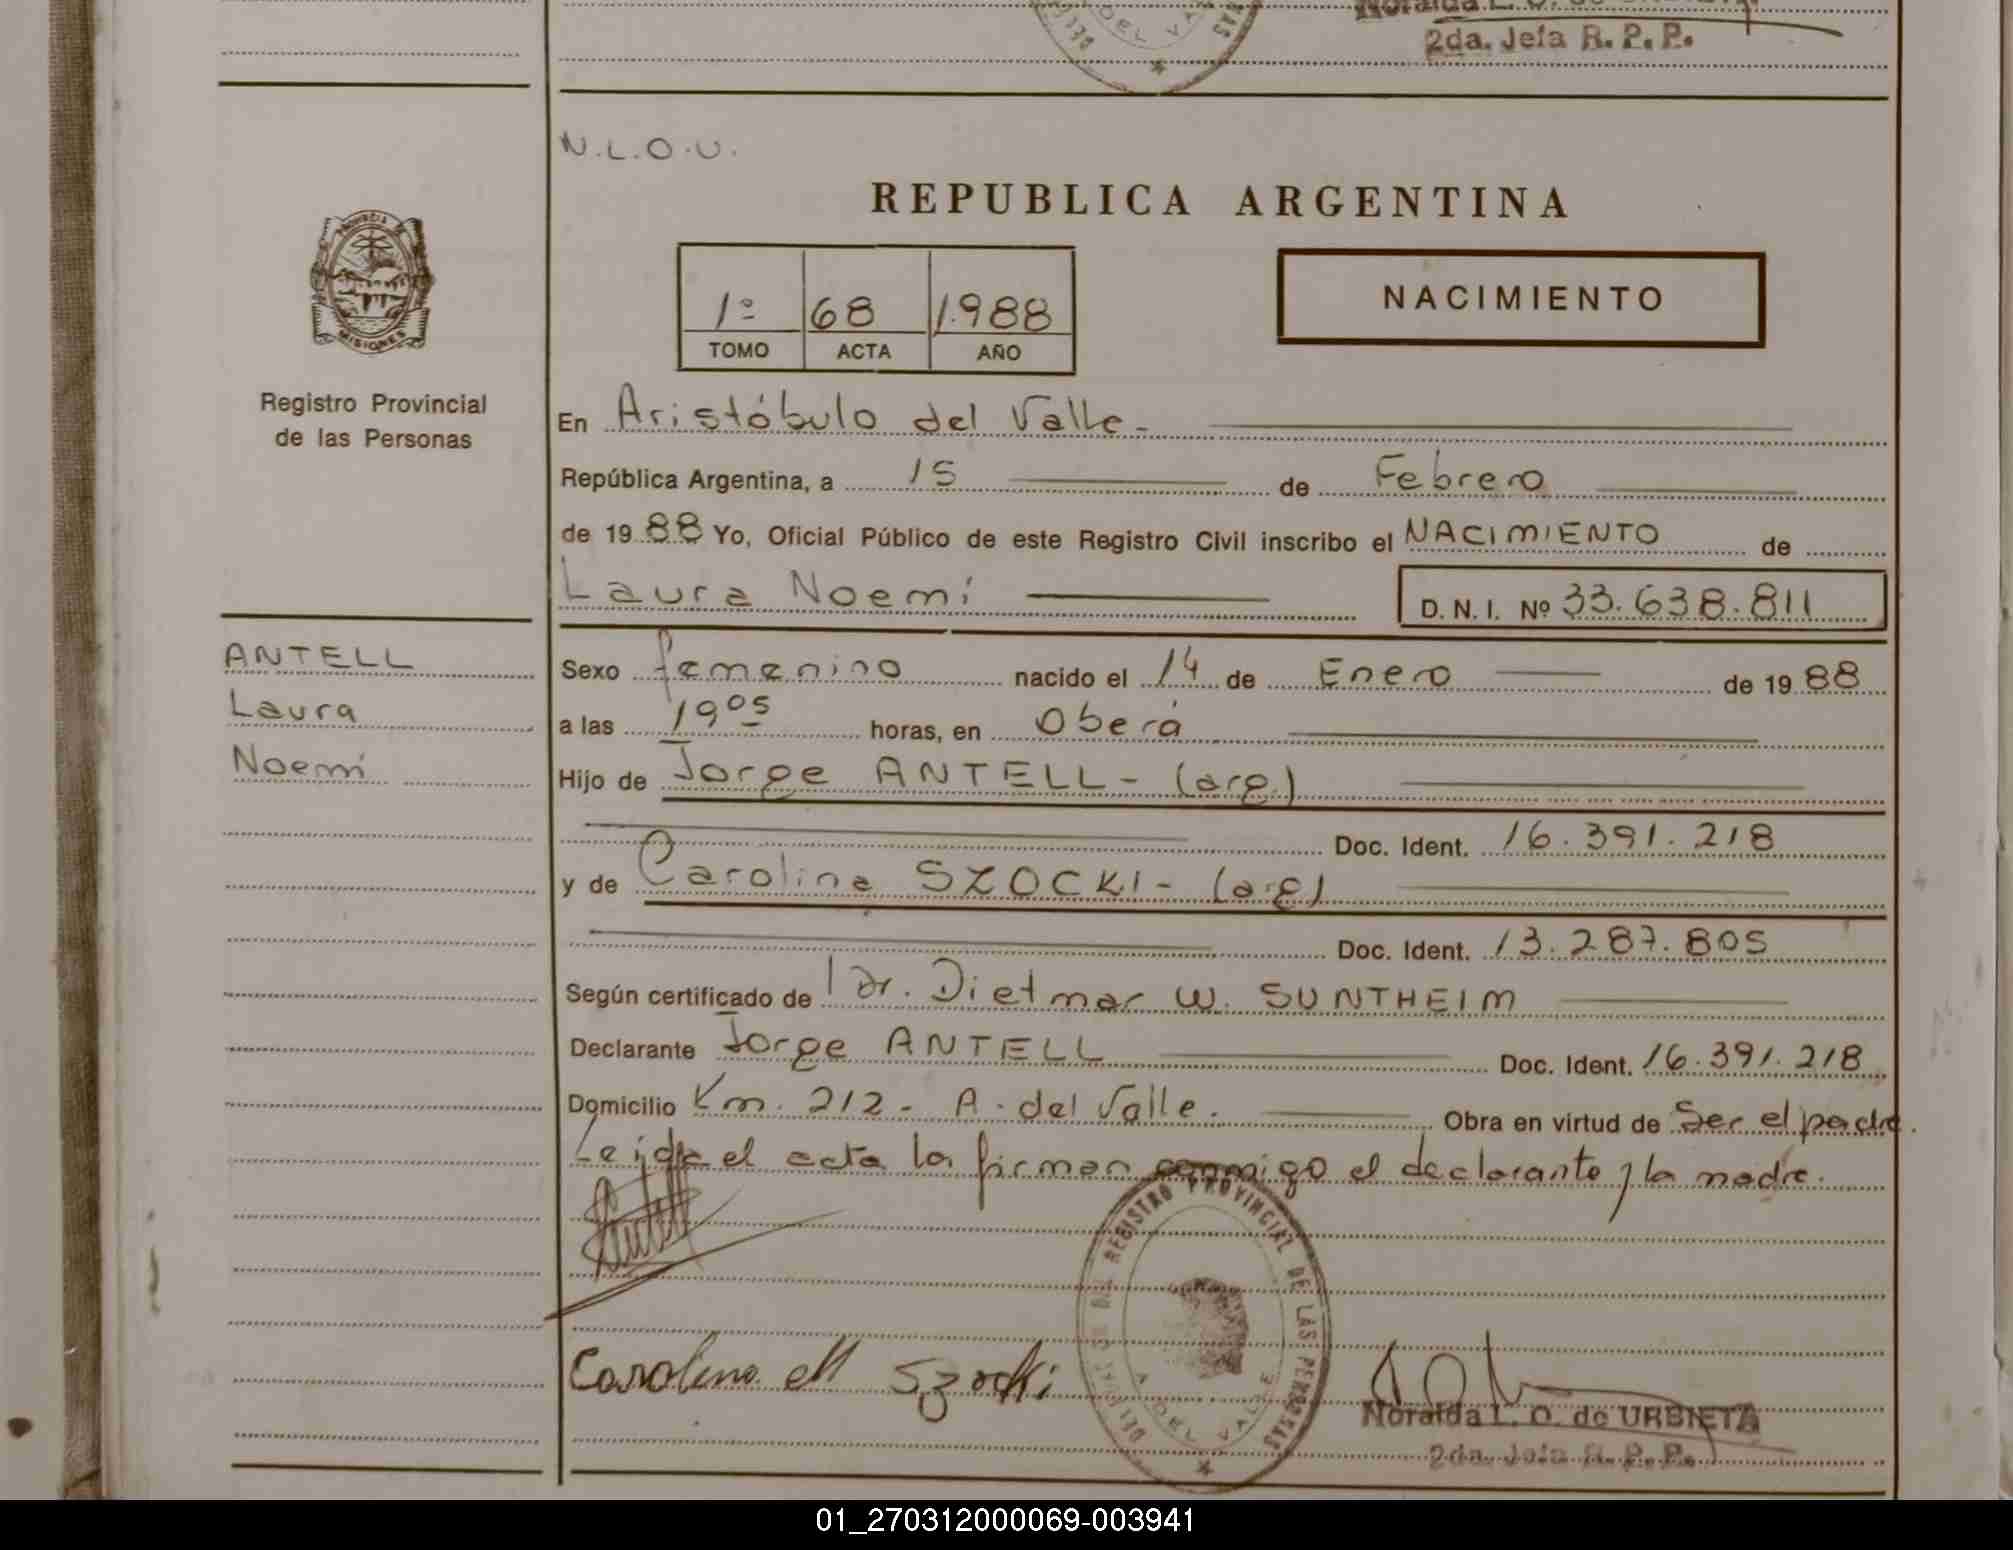 2da. Jefa R. P. P.
N.L.O.U.
REPUBLICA ARGENTINA
1º 68 1.988
TOMO ACTA AÑO
NACIMIENTO
PROVINCIA DE
MISIONES
Registro Provincial
de las Personas
En Aristóbulo del Valle.-
República Argentina, a 15 de Febrero
de 1988 Yo, Oficial Público de este Registro Civil inscribo el NACIMIENTO de
Laura Noemí D. N. I. Nº 33.638.811
ANTELL
Laura
Noemí
Sexo femenino nacido el 14 de Enero de 1988
a las 19 05 horas, en Oberá
Hijo de Jorge ANTELL - (arg.)
Doc. Ident. 16.391.218
y de Carolina SZOCKI - (arg)
Doc. Ident. 13.287.805
Según certificado de Dr. Dietmar W. SUNTHEIM
Declarante Jorge ANTELL Doc. Ident. 16.391.218
Domicilio Km. 212 - A. del Valle. Obra en virtud de Ser el padre.
Leída el acta la firman conmigo el declarante y la madre.
REGISTRO PROVINCIAL DE LAS PERSONAS
A. DEL VALLE
Carolina M Szocki
Noralda L. O. de URBIETA
2da. Jefa R. P. P.
01_270312000069-003941